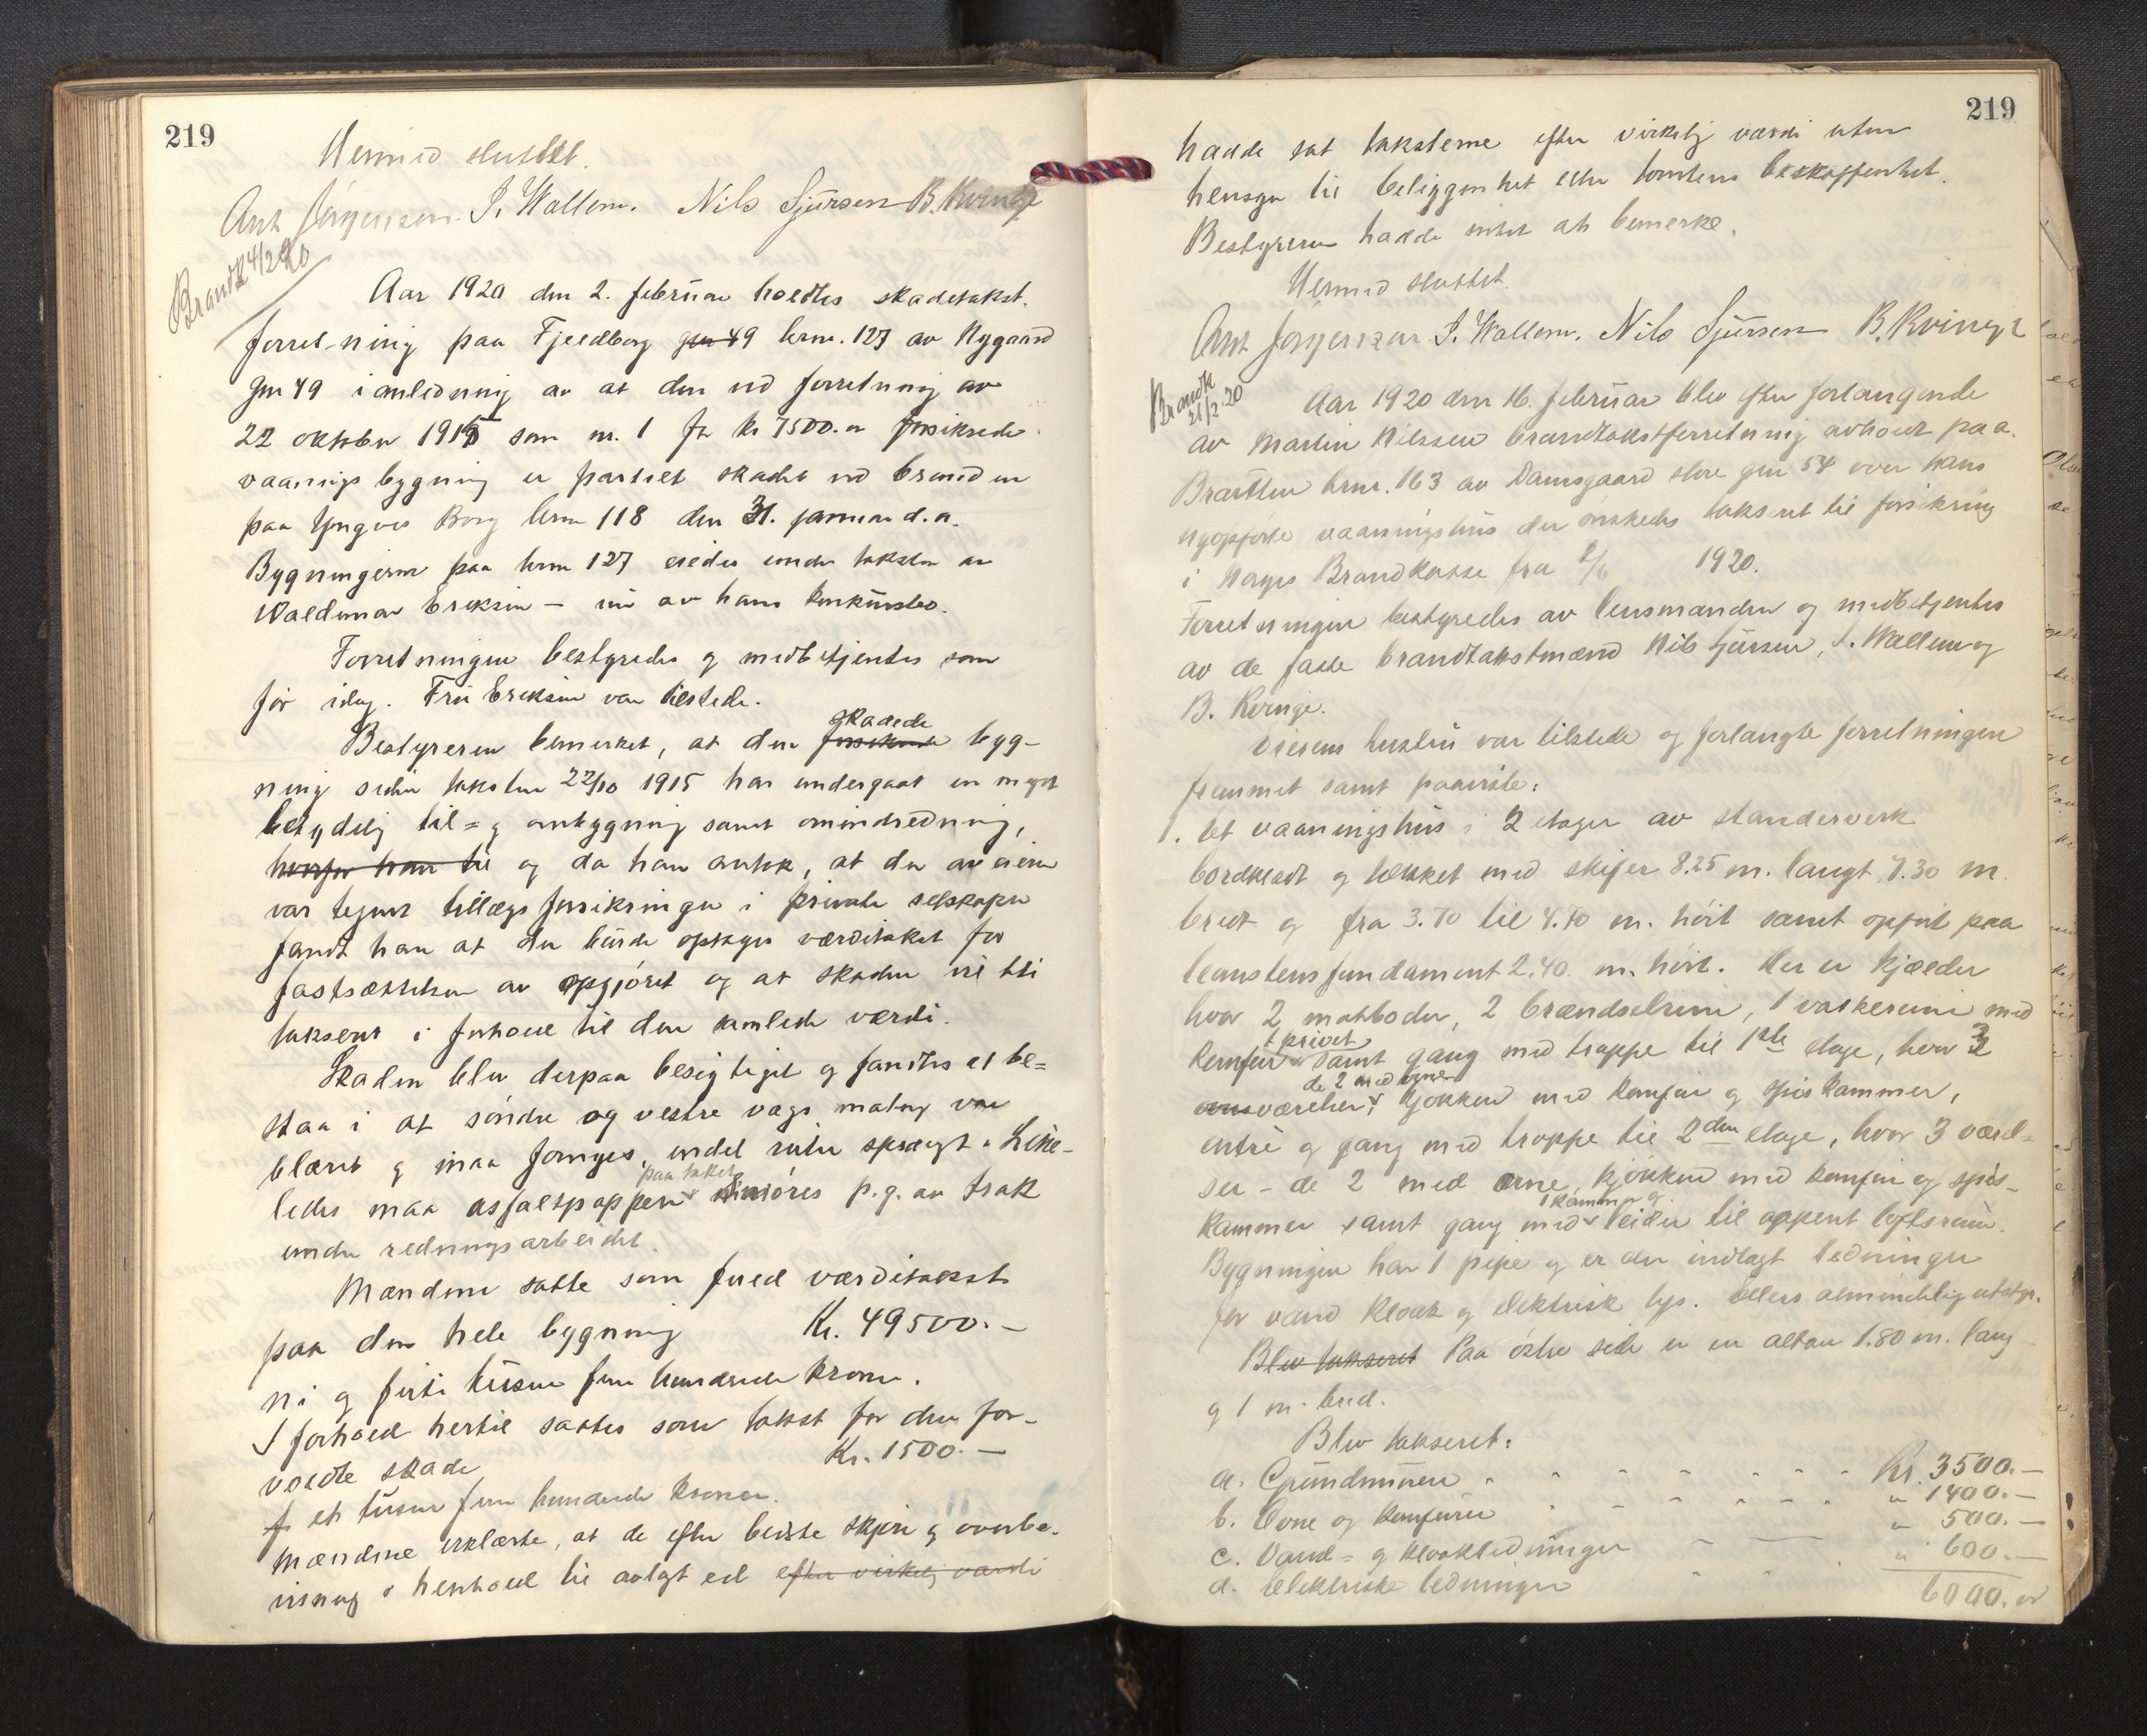 219
Hermed sluttet.
Ant Jørgensen. I. Wallem. Nils Sjürsen B. Kvinge
Brandk 4/2 20
Aar 1920 den 2. februar holdtes skadetakst.
forretning paa Fjeldborg gnr 49 brnr. 127 av Nygaard
gnr 49 i anledning av at den ved forretning av
22 oktober 1915 som nr. 1 for kr 7500.00 forsikrede
vaanings bygning er partielt skadet ved branden
paa Yngves Borg brnr 118 den 31. januar d.a.
Bygningerne paa brnr 127 eiedes under taksten av
Waldemar Eriksen – nu av hans konkursbo.
Forretningen bestyredes og medbetjentes som
før idag. Fru Eriksen var tilstede.
Bestyreren bemerket, at den forsikrede skadede byg-
ning siden taksten 22/10 1915 har undergaat en meget
betydelig til= og ombygning samt omindredning,
hvorfor han til og da han antok, at der av eieren
var tegnet tillægsforsikringer i private selskaper
fandt han at der burde optages værditakst for
fastsættelsen av opgjøret og at skaden vil bli
taksert i forhold til den samlede værdi.
Skaden blev derpaa besigtiget og fandtes at be=
staa i at søndre og vestre vægs maling var
blæret og maa fornyes, endel ruter sprægt. Like-
ledes maa asfaltpappen paa taket p.g. av trak
under redningsarbeidet.
Mændene satte som fuld værditakst
paa den hele bygning Kr. 49500.–
ni og firti tusen fem hundrede kroner.
I forhold hertil sattes som takst for den for-
voldte skade Kr. 1500.–
et tusen fem hundrede kroner.
Mændene erklærte, at de efter bedste skjøn og overbe-
visning i henhold til avlagt ed efter virkelig værdi
219
hadde sat taksterne efter virkelig værdi uten
hensyn til beliggenhet eller tomtens beskaffenhet.
Bestyreren hadde intet at bemerke.
Hermed sluttet.
Ant Jørgensen I. Wallem. Nils Sjürsen B. Kvinge
Brandk 21/2.20
Aar 1920 den 16. februar blev efter forlangende
av Martin Nilssen brandtakstforretning avholdt paa
Braatten brnr. 163 av Damsgaard store gnr 54 over hans
nyopførte vaaningshus der ønskedes taksert til forsikring
i Norges Brandkasse fra 1920.
Forretningen bestyredes av lensmanden og medbetjentes
av de faste brandtakstmænd Nils Sjursen, I. Wallem og
B. Kvinge.
Eierens hustru var tilstede og forlangte forretningen
fremmet samt paaviste:
1. Et vaaningshus i 2 etager av standerverk
bordklædt og tækket med skifer 8.25 m. langt, 7.30 m.
bredt og fra 3.70 til 4.70 m. høit samt opført paa
fundament 2.40 m. høit. Her er kjælder
hvor 2 matboder, 2 brændselrum, 1 vaskerum med
komfur 1 privet samt gang med trappe til 1ste etage, hvor 3
værelser, de 2 med ovne kjøkken med komfur og spiskammer,
entré og gang med trappe til 2den etage, hvor 3 værel=
ser – de 2 med ovne, kjøkken med komfur og spis-
kammer samt gang med 1 kammer og leider til oppent loftsrum.
Bygningen har 1 pipe og er der indlagt ledninger
for vand kloak og elektrisk lys. Ellers almindelig utstyr.
Blev takseret Paa østre side er en altan 1.80 m. lang
og 1 m. bred.
Blev takseret:
a. Grundmuren Kr. 3500.–
b. Ovne og komfurer " 1400.–
c. Vand= og kloakledninger " 500.–
d. Elektriske ledninger " 600.–
6000.00